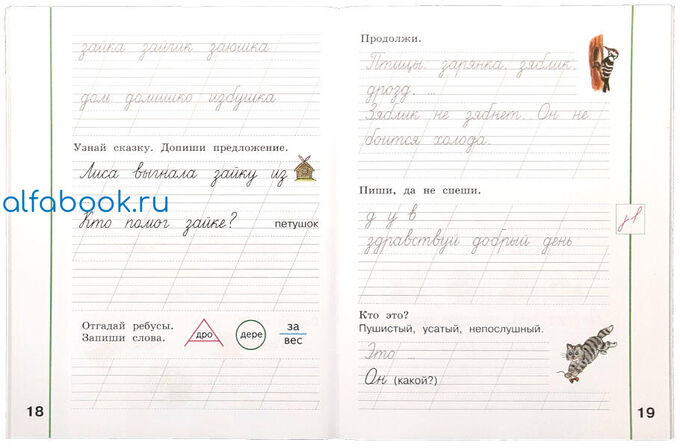 зайка зайчик заюшка
дом домишко избушка
Узнай сказку. Допиши предложение.
Лиса выгнала зайку из
alfabook.ru
Кто помог зайке? петушок
Отгадай ребусы.
Запиши слова.
дро
дере
за
вес
18
Продолжи.
Птицы: зарянка, зяблик,
дрозд, ...
Зяблик не зябнет. Он не
боится холода.
Пиши, да не спеши.
д у в
здравствуй добрый день
Кто это?
Пушистый, усатый, непослушный.
Это ...
Он (какой?)
19